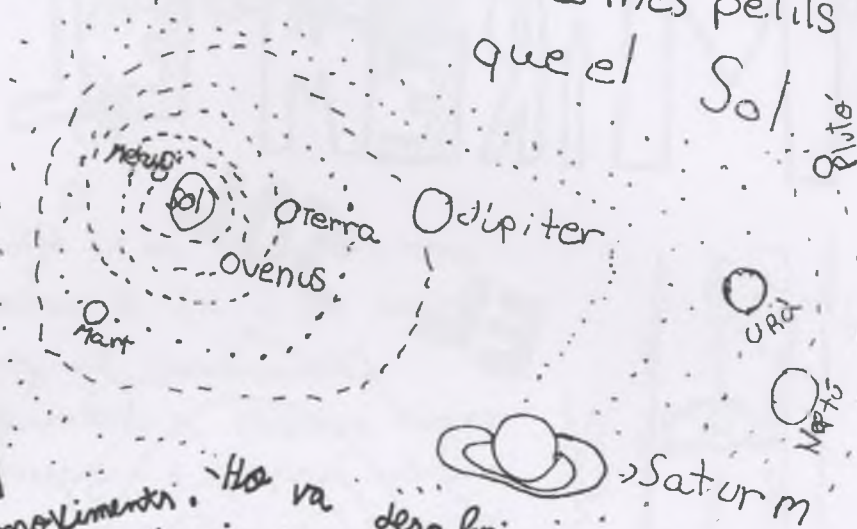 més petits
que el Sol
Plutó
Sol
Terra
Júpiter
Venus
Mart
Urà
Neptú
Saturm
moviments. Ho va